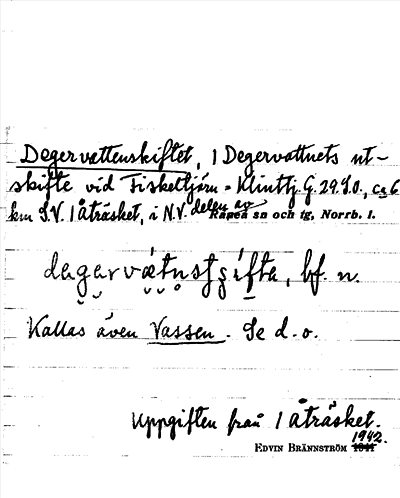 Degervattenskiftet, 1 Degervattnets ut-
skifte vid Fisketjärn = Klinttj. G. 29.S.O., ca 6
km S.V. 1 Åträsket, i N.V. delen av Råneå sn och tg, Norrb. l.
bf. n.
Kallas även Vassen. Se d. o.
Uppgiften från 1 Åträsket.
1942.
EDVIN BRÄNNSTRÖM 1941